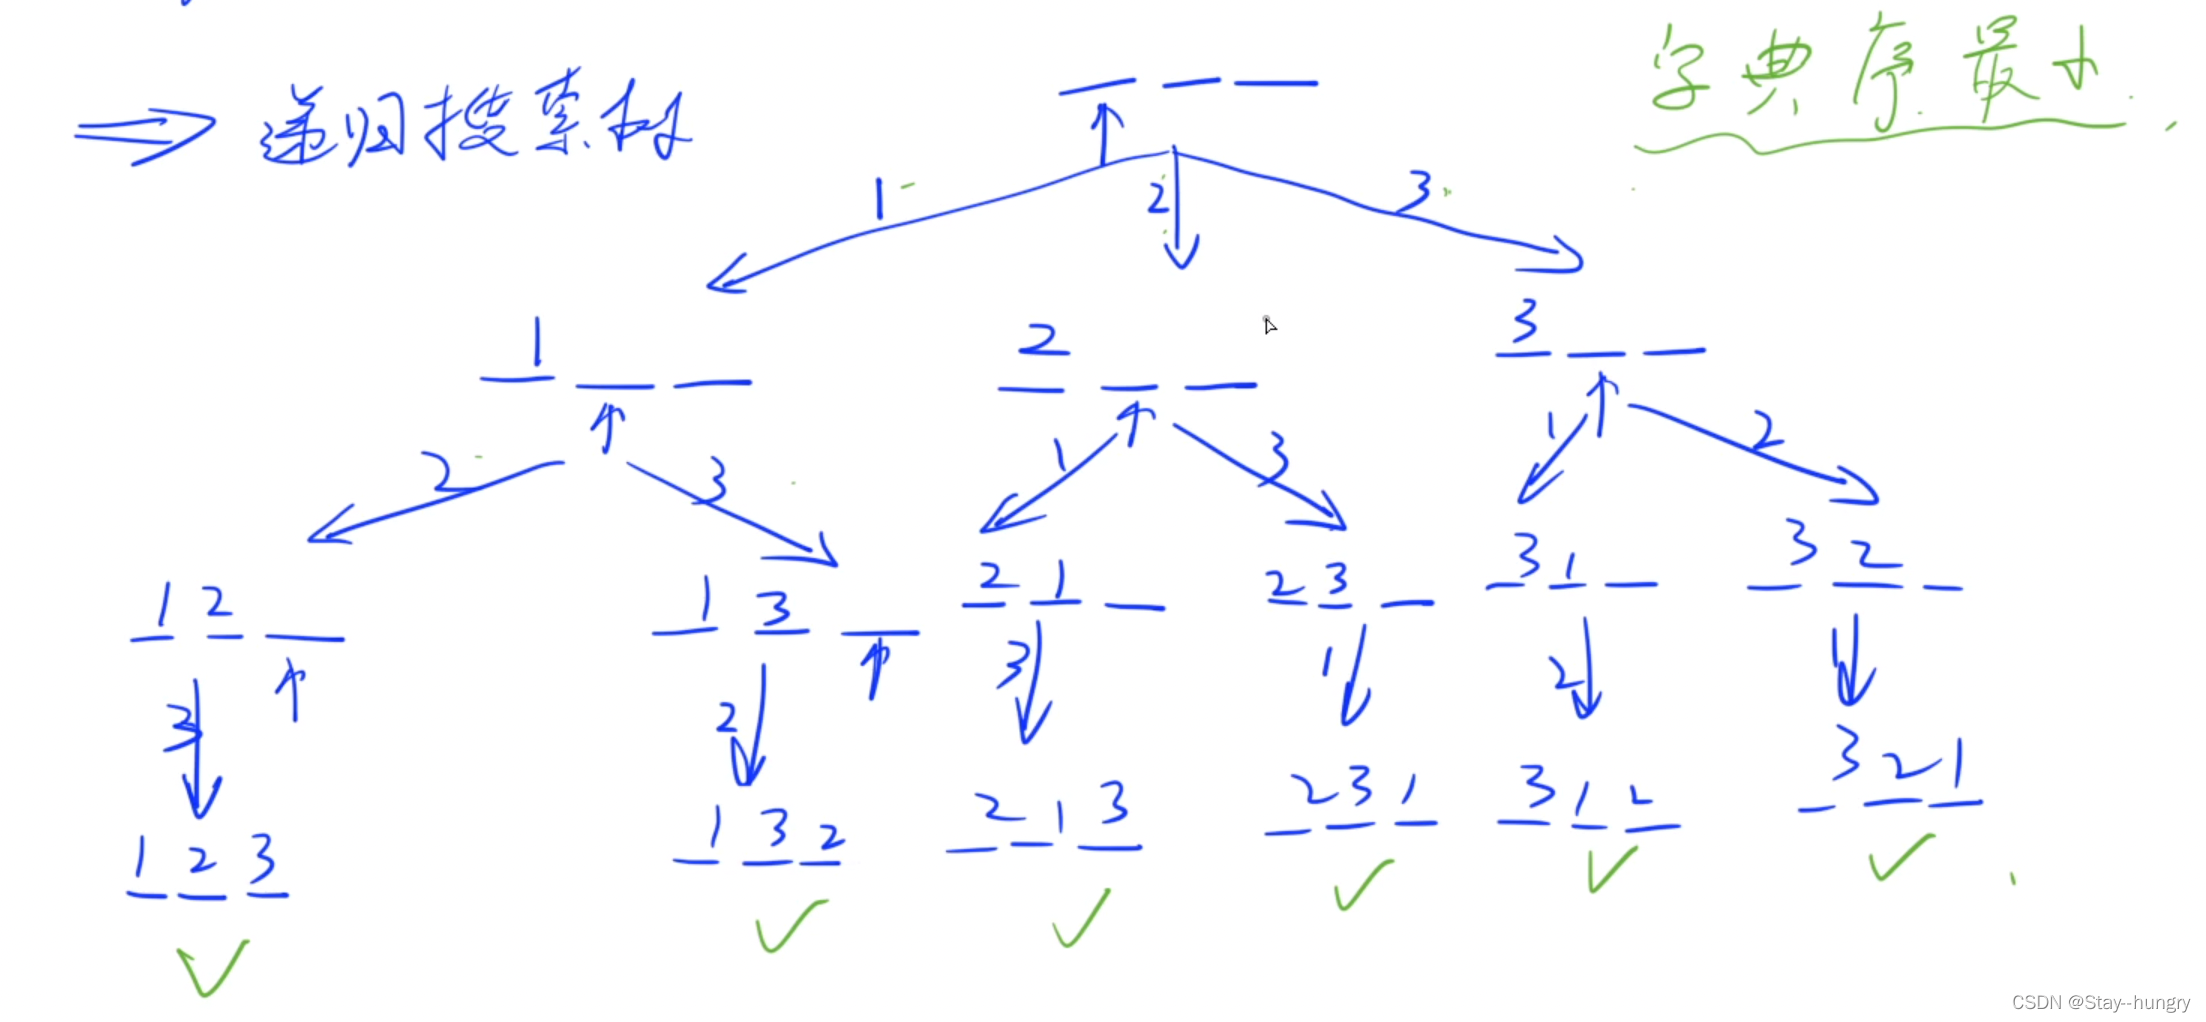 ⇒ 递归搜索树
字典序最小.
1 2 3
1 2 3
2 3 1 3 1 2
1 2 1 3 2 1 2 3 3 1 3 2
3 2 3 1 2 1
1 2 3 1 3 2 2 1 3 2 3 1 3 1 2 3 2 1
CSDN @Stay--hungry